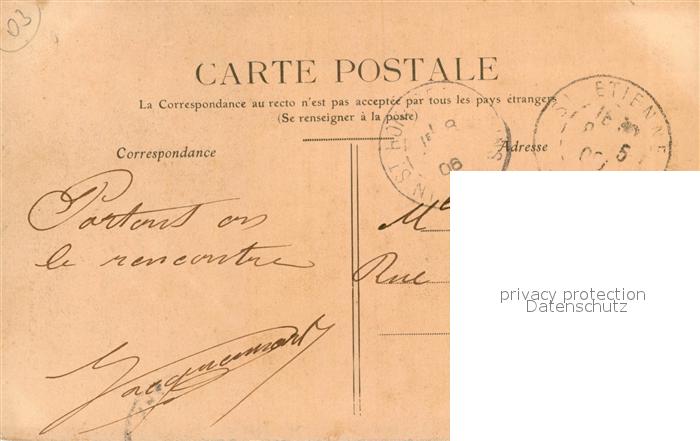 03
CARTE POSTALE
La Correspondance au recto n'est pas acceptée par tous les pays étrangers
(Se renseigner à la poste)
Correspondance
Adresse
ETIENNE
06
Partout on
le rencontre
Mlle
Rue
privacy protection
Datenschutz